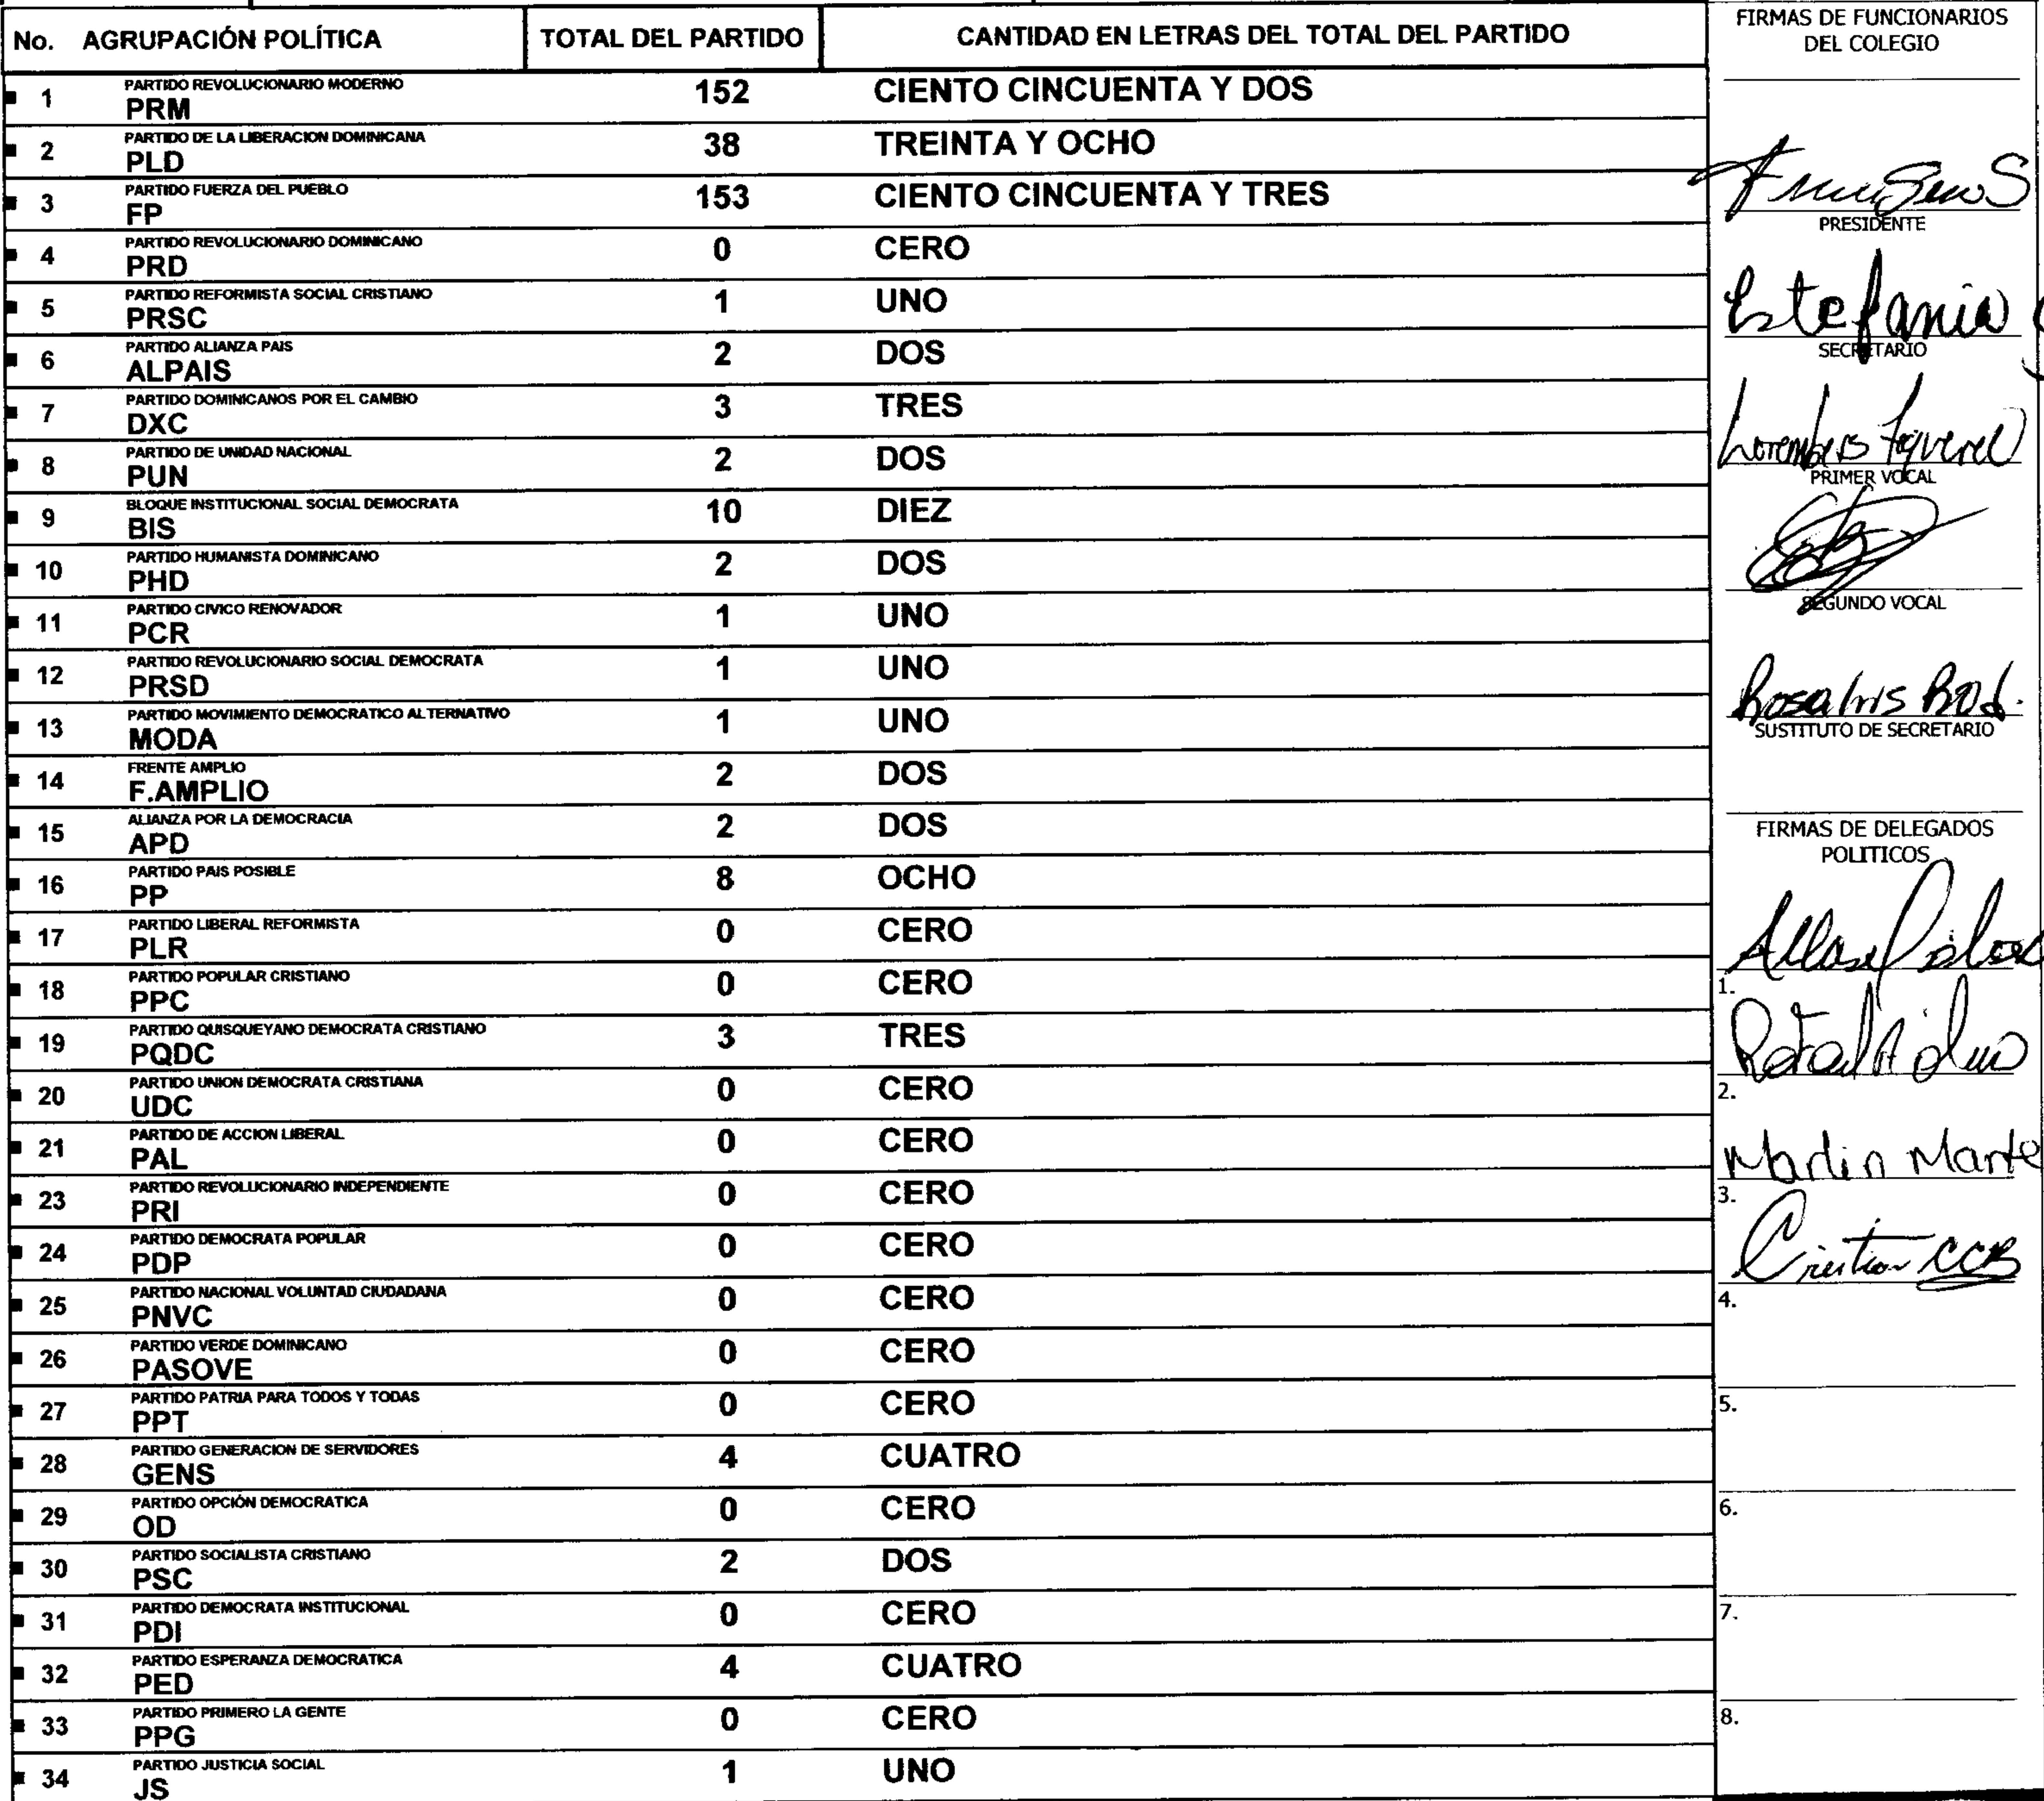 No. AGRUPACIÓN POLÍTICA TOTAL DEL PARTIDO CANTIDAD EN LETRAS DEL TOTAL DEL PARTIDO
1 PARTIDO REVOLUCIONARIO MODERNO
PRM 152 CIENTO CINCUENTA Y DOS
2 PARTIDO DE LA LIBERACION DOMINICANA
PLD 38 TREINTA Y OCHO
3 PARTIDO FUERZA DEL PUEBLO
FP 153 CIENTO CINCUENTA Y TRES
4 PARTIDO REVOLUCIONARIO DOMINICANO
PRD 0 CERO
5 PARTIDO REFORMISTA SOCIAL CRISTIANO
PRSC 1 UNO
6 PARTIDO ALIANZA PAIS
ALPAIS 2 DOS
7 PARTIDO DOMINICANOS POR EL CAMBIO
DXC 3 TRES
8 PARTIDO DE UNIDAD NACIONAL
PUN 2 DOS
9 BLOQUE INSTITUCIONAL SOCIAL DEMOCRATA
BIS 10 DIEZ
10 PARTIDO HUMANISTA DOMINICANO
PHD 2 DOS
11 PARTIDO CIVICO RENOVADOR
PCR 1 UNO
12 PARTIDO REVOLUCIONARIO SOCIAL DEMOCRATA
PRSD 1 UNO
13 PARTIDO MOVIMIENTO DEMOCRATICO ALTERNATIVO
MODA 1 UNO
14 FRENTE AMPLIO
F.AMPLIO 2 DOS
15 ALIANZA POR LA DEMOCRACIA
APD 2 DOS
16 PARTIDO PAIS POSIBLE
PP 8 OCHO
17 PARTIDO LIBERAL REFORMISTA
PLR 0 CERO
18 PARTIDO POPULAR CRISTIANO
PPC 0 CERO
19 PARTIDO QUISQUEYANO DEMOCRATA CRISTIANO
PQDC 3 TRES
20 PARTIDO UNION DEMOCRATA CRISTIANA
UDC 0 CERO
21 PARTIDO DE ACCION LIBERAL
PAL 0 CERO
23 PARTIDO REVOLUCIONARIO INDEPENDIENTE
PRI 0 CERO
24 PARTIDO DEMOCRATA POPULAR
PDP 0 CERO
25 PARTIDO NACIONAL VOLUNTAD CIUDADANA
PNVC 0 CERO
26 PARTIDO VERDE DOMINICANO
PASOVE 0 CERO
27 PARTIDO PATRIA PARA TODOS Y TODAS
PPT 0 CERO
28 PARTIDO GENERACION DE SERVIDORES
GENS 4 CUATRO
29 PARTIDO OPCIÓN DEMOCRATICA
OD 0 CERO
30 PARTIDO SOCIALISTA CRISTIANO
PSC 2 DOS
31 PARTIDO DEMOCRATA INSTITUCIONAL
PDI 0 CERO
32 PARTIDO ESPERANZA DEMOCRATICA
PED 4 CUATRO
33 PARTIDO PRIMERO LA GENTE
PPG 0 CERO
34 PARTIDO JUSTICIA SOCIAL
JS 1 UNO
FIRMAS DE FUNCIONARIOS
DEL COLEGIO
PRESIDENTE
Estefania
SECRETARIO
PRIMER VOCAL
SEGUNDO VOCAL
SUSTITUTO DE SECRETARIO
FIRMAS DE DELEGADOS
POLITICOS
1.
2.
Martin Marte
3.
4.
5.
6.
7.
8.